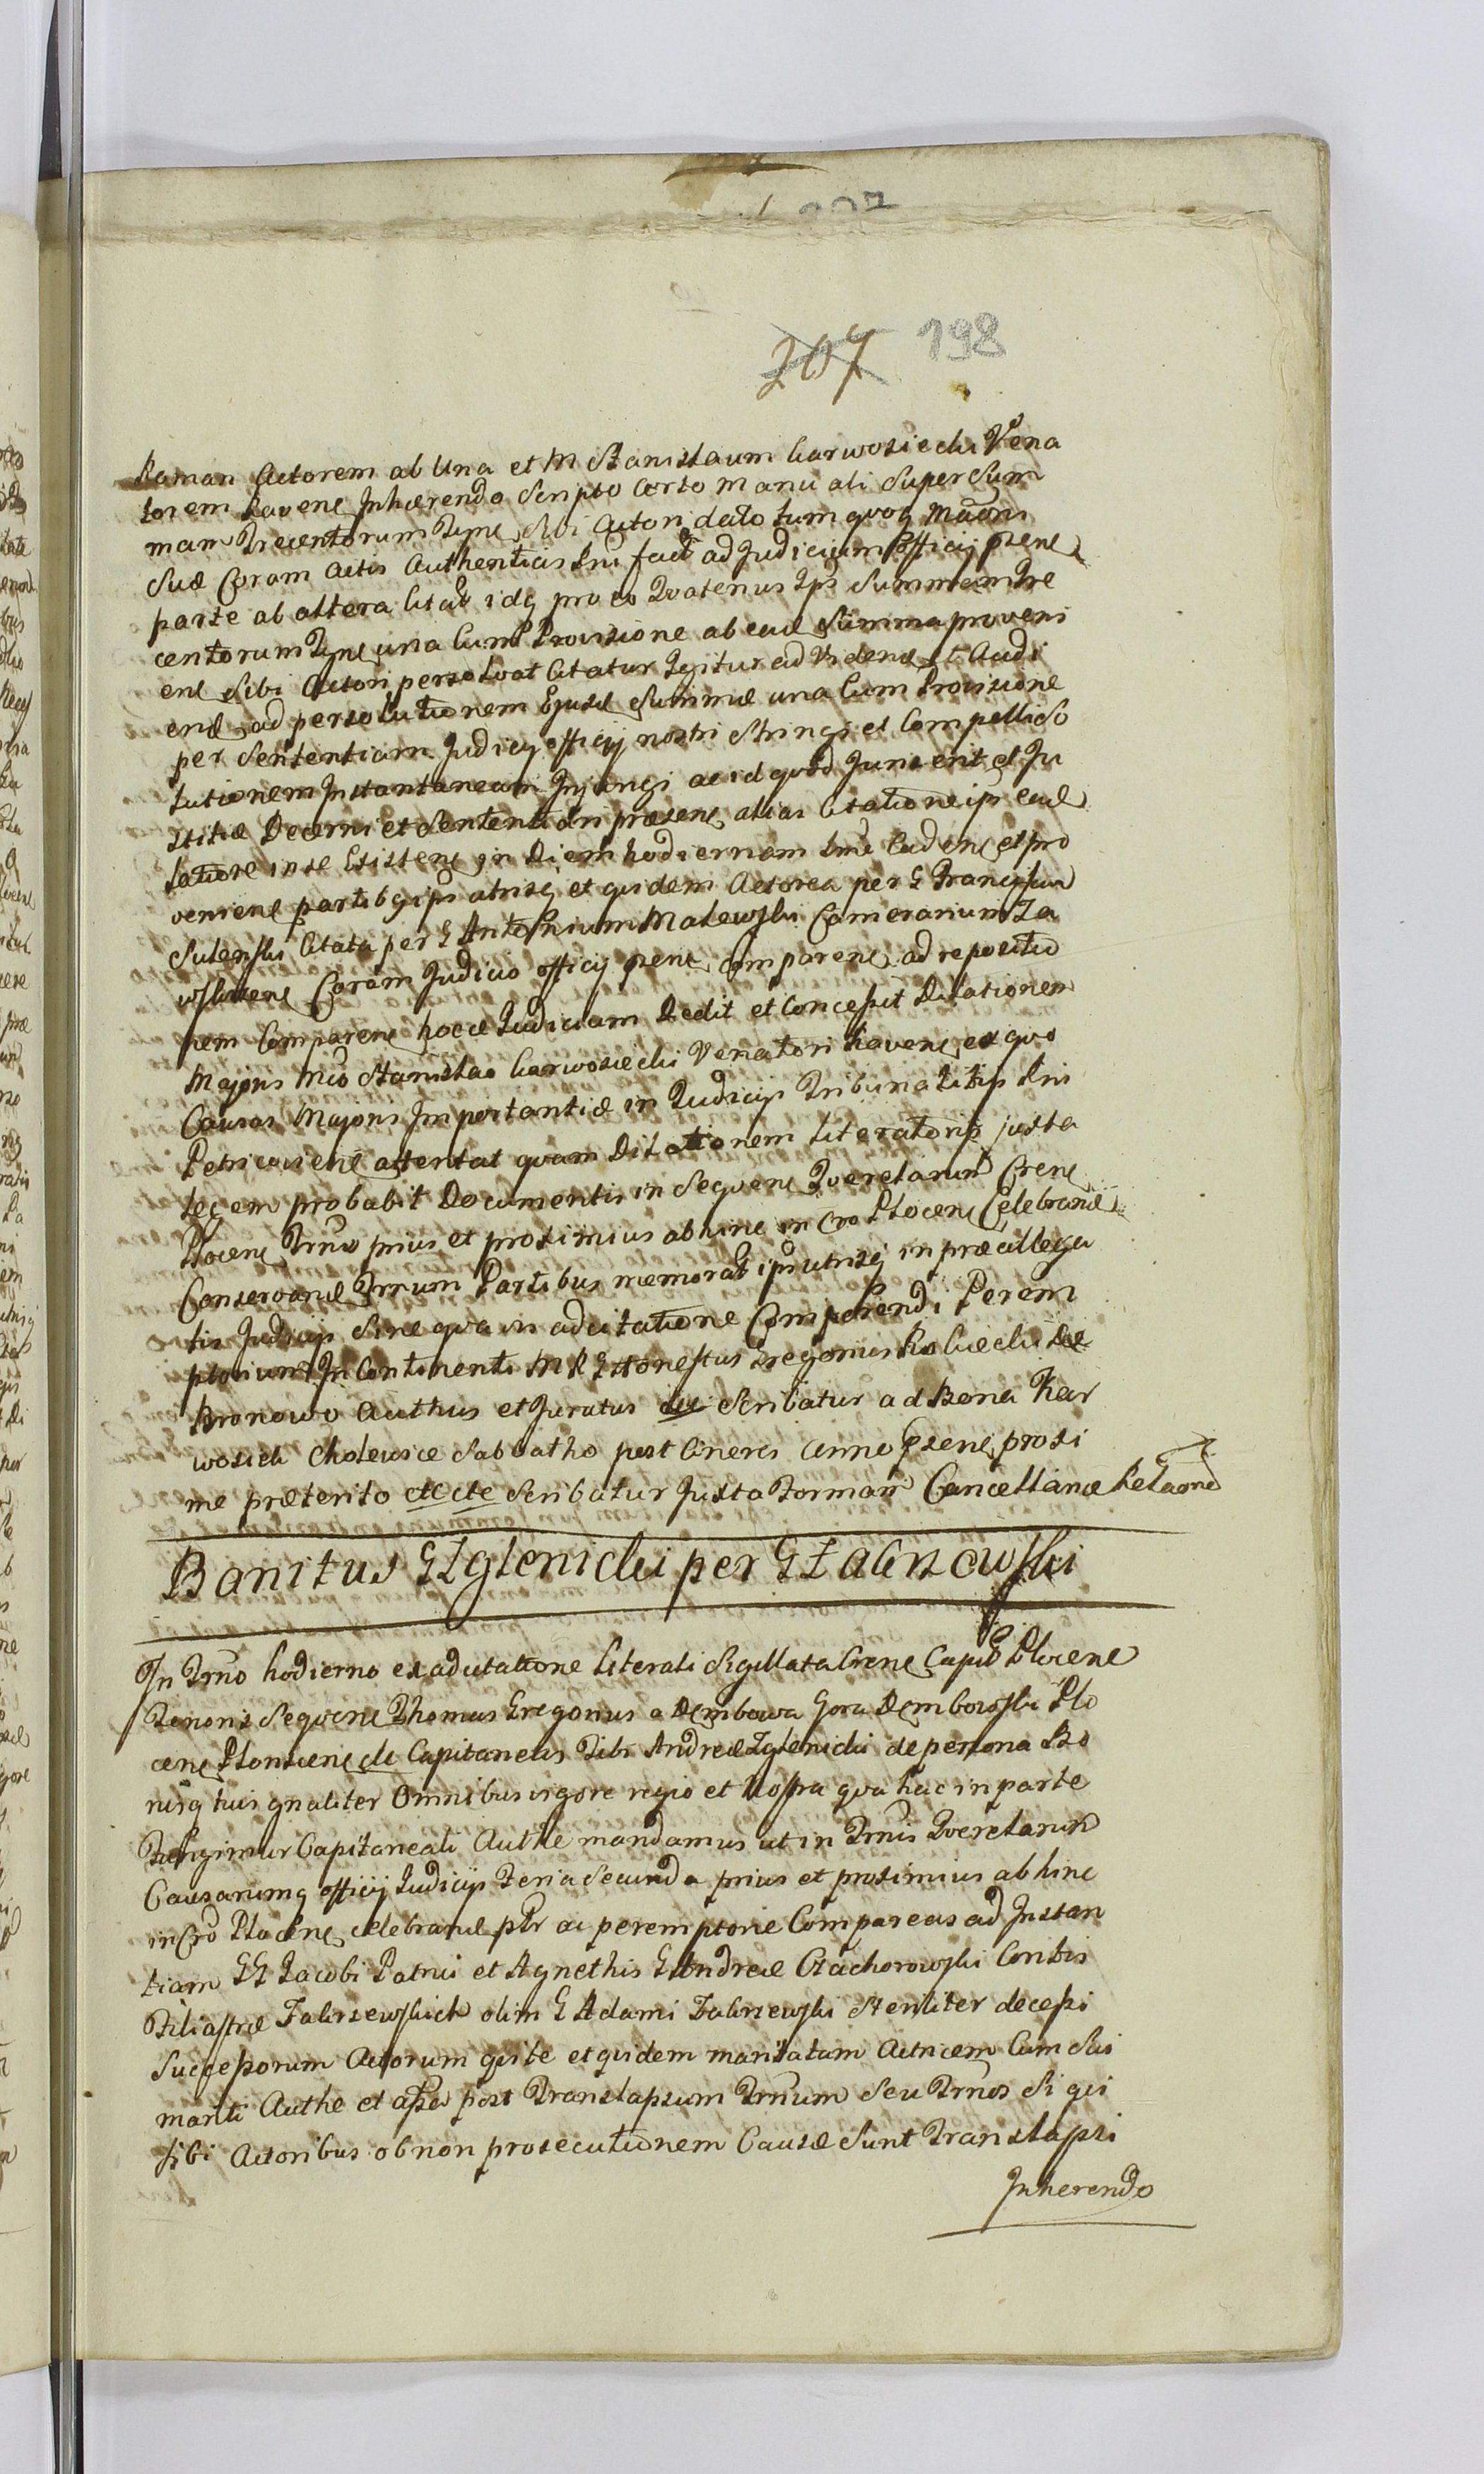 207 198
Raman Actorem ab Una et M Stanislaum Karwosiecki Vena
torem Ravens Inhaerendo Scripto Certo Manuali Super Sum
mam Trecentorum Tymf Sibi Actori dato tum quoq
Suae Coram Actis Authenticis fact ad Judicium Officij psens
parte ab altera citat idq pro eo Qvatenus Ips Summam Tre
centorum Tymf una Cum Provisione ab ead Summa proveni
ens Sibi Actori persolvat Citatur Igitur ad Videnđ et Audi
enđ ad persolutionem Ejusd Summae una Cum Provisione
per Sententiam Judicij officij nostri Stringi et Compelli So
lutionem Instantaneam Injungi ac id quod Juris erit et Ju
stitiae Decerni et Sententi In praesens alias Citatione ip ead
latiore in se Existens in Diem hodiernam Cadens et pro
veniens partibq ips utrisq et quidem Actorea per G Franciscum
Citata per G Antonium Makowski Camerarium Za
Coram Judicio officij psens Comparens ad repositio
nem Comparens hocce Judicium Dedit et Concessit Dilationem
Majoris Mco Stanislao Karwosiecki Venatori Ravens ex quo
Causas Majoris Importantiae in Judicijs Tribunalitijs
Petricoviens attentat quam Dilationem literatoris juxta
legem probabit Documentis in Sequens Querelarum Crens
Plocens Trnos prius et proximius abhinc in Cro Plocens Celebranđ
Conservanđ Trnum Partibus memorat ips utrisq in praeallega
tis Judicijs Sine qvavis adcitatione Comparendi Perem
ptorium In Continenti M R G Honestus Gregorius de
Bronowo Authus et Juratus Scribatur ad Bona Kar
wosieki Cholewice Sabbatho post Cineres Anno psens proxi
me praeterito etc etc Scribatur Juxta Formam Cancellariae Relaone
Banitus G Zglenicki per G Falencowski
In Trno hodierno ex adcitatione Literali Sigillata Crens Capit Plocens
Tenoris Sequens Thomas Gregorius a Dembowa Gora Dembowski Plo
cens Plonscens etc Capitaneus Tibi Andreae Zglenicki de persona Bo
nisq tuis gnaliter Omnibus vigore regio et Nostra qva hac in parte
Fungimur Capitaneali Authe mandamus ut in Trnis Querelarum
Causarumq officij Judicijs Feria Secunda prius et proximius abhinc
in Cro Plocens celebranđ pltr ac peremptorie Compareas ad Instan
tiam GG Jacobi Patrui et Agnethis G Andreae Czachorowski Contis
Filiastrae Falenczewskich olim G Adami Falenczewski Steriliter decessi
Successorum Actorum qui te et quidem maritatam Actricem Cum Sui
mariti Authe et post Translapsum Trnum Seu Trnos Si qui
sibi Actoribus ob non prosecutionem Causae Sunt Translapsi
Inherendo